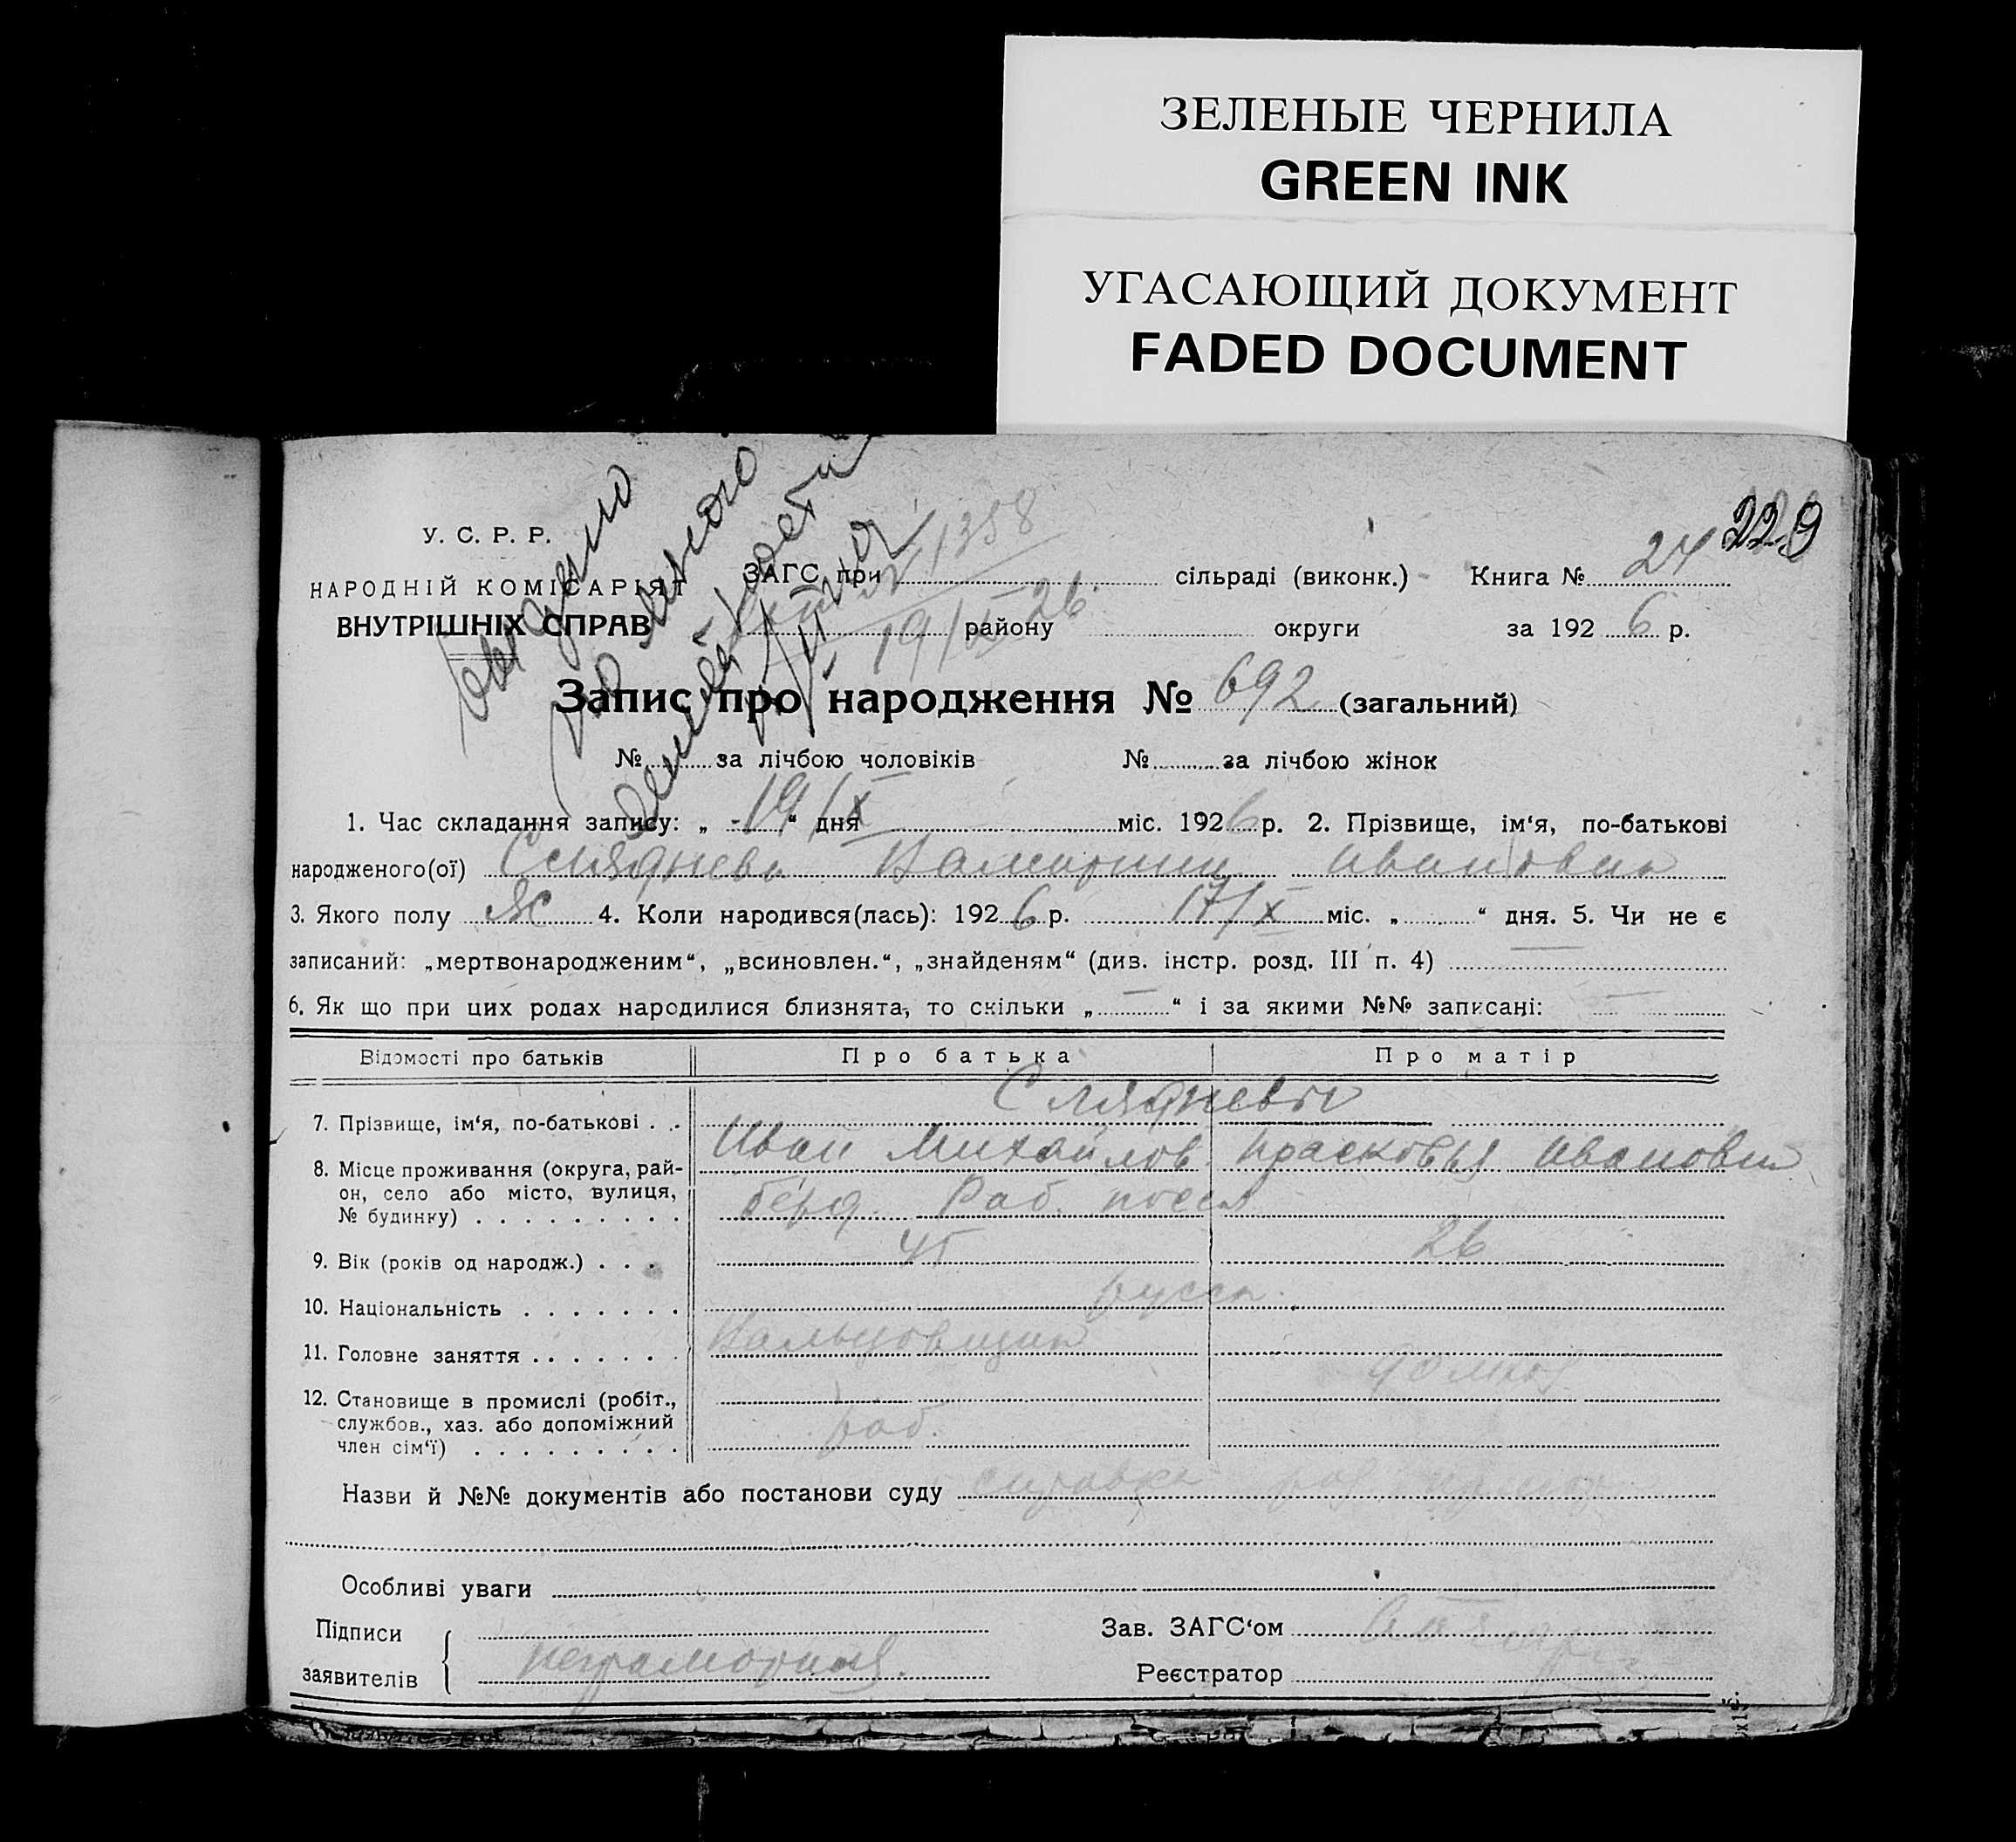 ЗЕЛЕНЫЕ ЧЕРНИЛА
GREEN INK
УГАСАЮЩИЙ ДОКУМЕНТ
FADED DOCUMENT
229
У. С. Р. Р.
НАРОДНІЙ КОМІСАРІЯТ
ВНУТРІШНІХ СПРАВ
1358
ЗАГС при сільраді (виконк.) Книга № 24
19/X 26. району округи за 192 6 р.
Запис про народження № 692 (загальний)
№ за лічбою чоловіків № за лічбою жінок
1. Час складання запису: „ 19/X “ дня міс. 192 6 р. 2. Прізвище, ім‘я, по-батькові
народженого(ої) Ивановна
3. Якого полу ж 4. Коли народився(лась): 192 6 р. 17/X міс. „ “ дня. 5. Чи не є
записаний: „мертвонародженим“, „всиновлен.“, „знайденям“ (див. інстр. розд. III п. 4) —
6. Як що при цих родах народилися близнята, то скільки „ — “ і за якими №№ записані: —
Відомості про батьків Про батька Про матір
Слядневы
7. Прізвище, ім‘я, по-батькові . .
Иван Михайлов. Прасковья Ивановна
8. Місце проживання (округа, рай-
он, село або місто, вулиця,
№ будинку) . . . . . . . . . Берд. Раб. посел
9. Вік (років од народж.) . . . 45 26
10. Національність . . . . . . . русск.
11. Головне заняття . . . . . . .
12. Становище в промислі (робіт.,
службов., хаз. або допоміжний
член сім‘ї) . . . . . . . . . раб.
Назви й №№ документів або постанови суду справка
Особливі уваги
Підписи
заявителів неграмотная.
Зав. ЗАГС‘ом
Реєстратор